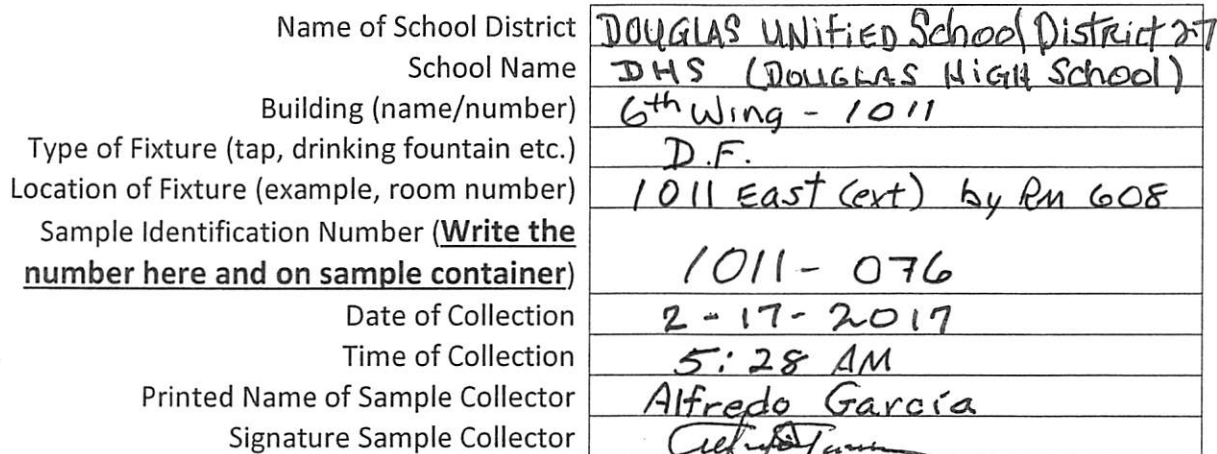 Name of School District DOUGLAS UNIFIED School District 27
School Name DHS (DOUGLAS HIGH School)
Building (name/number) 6th Wing - 1011
Type of Fixture (tap, drinking fountain etc.) D.F.
Location of Fixture (example, room number) 1011 East (ext) by Rm 608
Sample Identification Number (Write the
number here and on sample container) 1011 - 076
Date of Collection 2 - 17 - 2017
Time of Collection 5:28 AM
Printed Name of Sample Collector Alfredo Garcia
Signature Sample Collector